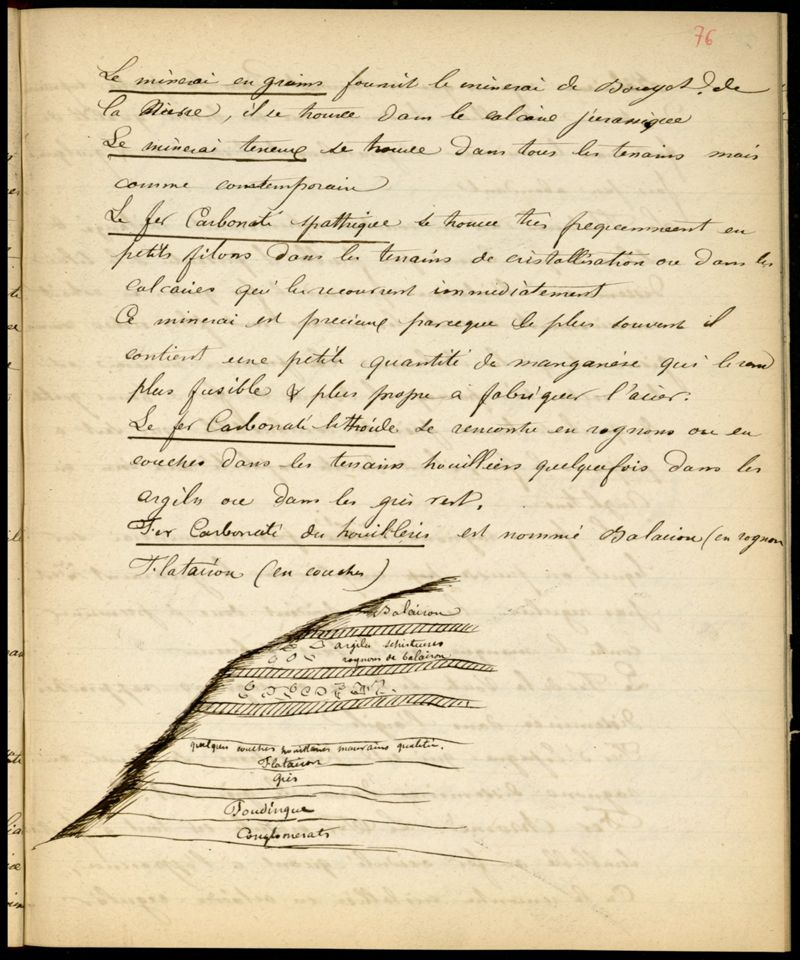 76
Le minerai en grains fournit le minerai de de
la , il se trouve dans le calcaire jurassique
Le minerai terreux se trouve dans tous les terrains mais
comme contemporain
Le fer Carbonaté spathique se trouve très frequemment en
petits filons dans les terrains de cristallisation ou dans les
calcaires qui les recouvrent immediatement
Ce minerai est precieux parceque le plus souvent il
contient une petite quantité de manganèse qui le rend
plus fusible & plus propre à fabriquer l'acier.
Le fer Carbonaté lithoïde se rencontre en rognons ou en
couches dans les terrains houilliers quelquefois dans les
argiles ou dans les grès vert.
Fer Carbonaté du houilleris est nommé Balairon (en rognon
Flatairon (en couches)
Balairon
argiles schisteuses
rognons de balairon
quelques couches houilleres mauvaises qualités.
Flatairon
Grès
Poudingue
Conglomerats